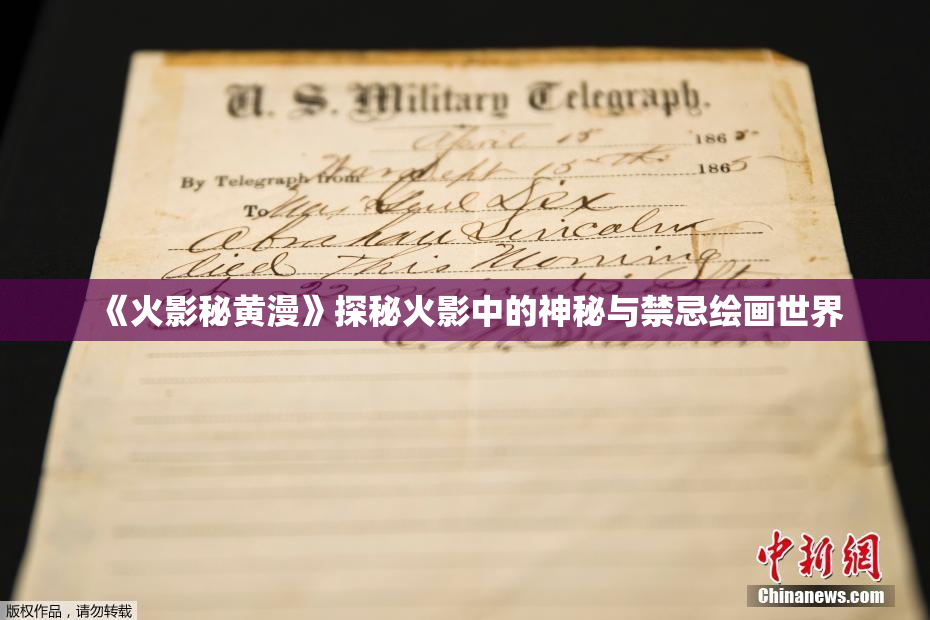 U. S. Military Telegraph.
April 15 1865
By Telegraph from War Dept 15th 1865
To Maj Genl Dix
Abraham Lincoln
died This Morning
at 22 minutes after
《火影秘黄漫》探秘火影中的神秘与禁忌绘画世界
E. M. Stanton
中新网
Chinanews.com
版权作品，请勿转载